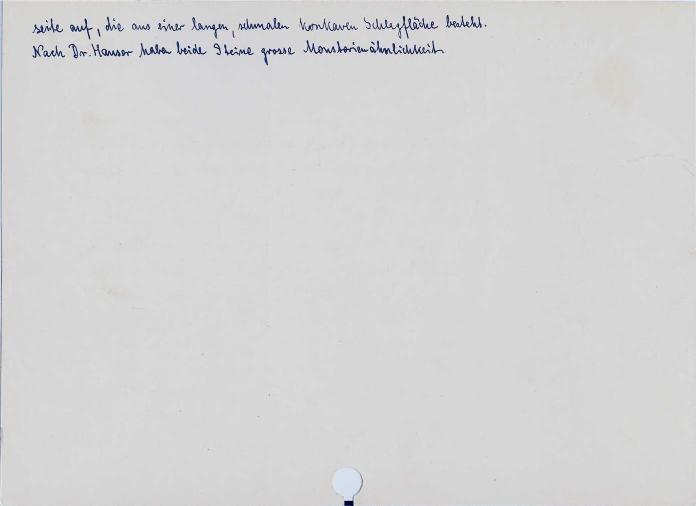 seite auf, die aus einer langen, schmalen konkaven Schlagfläche besteht.
Nach Dr. Hauser haben beide Steine grosse Moustérienähnlichkeit